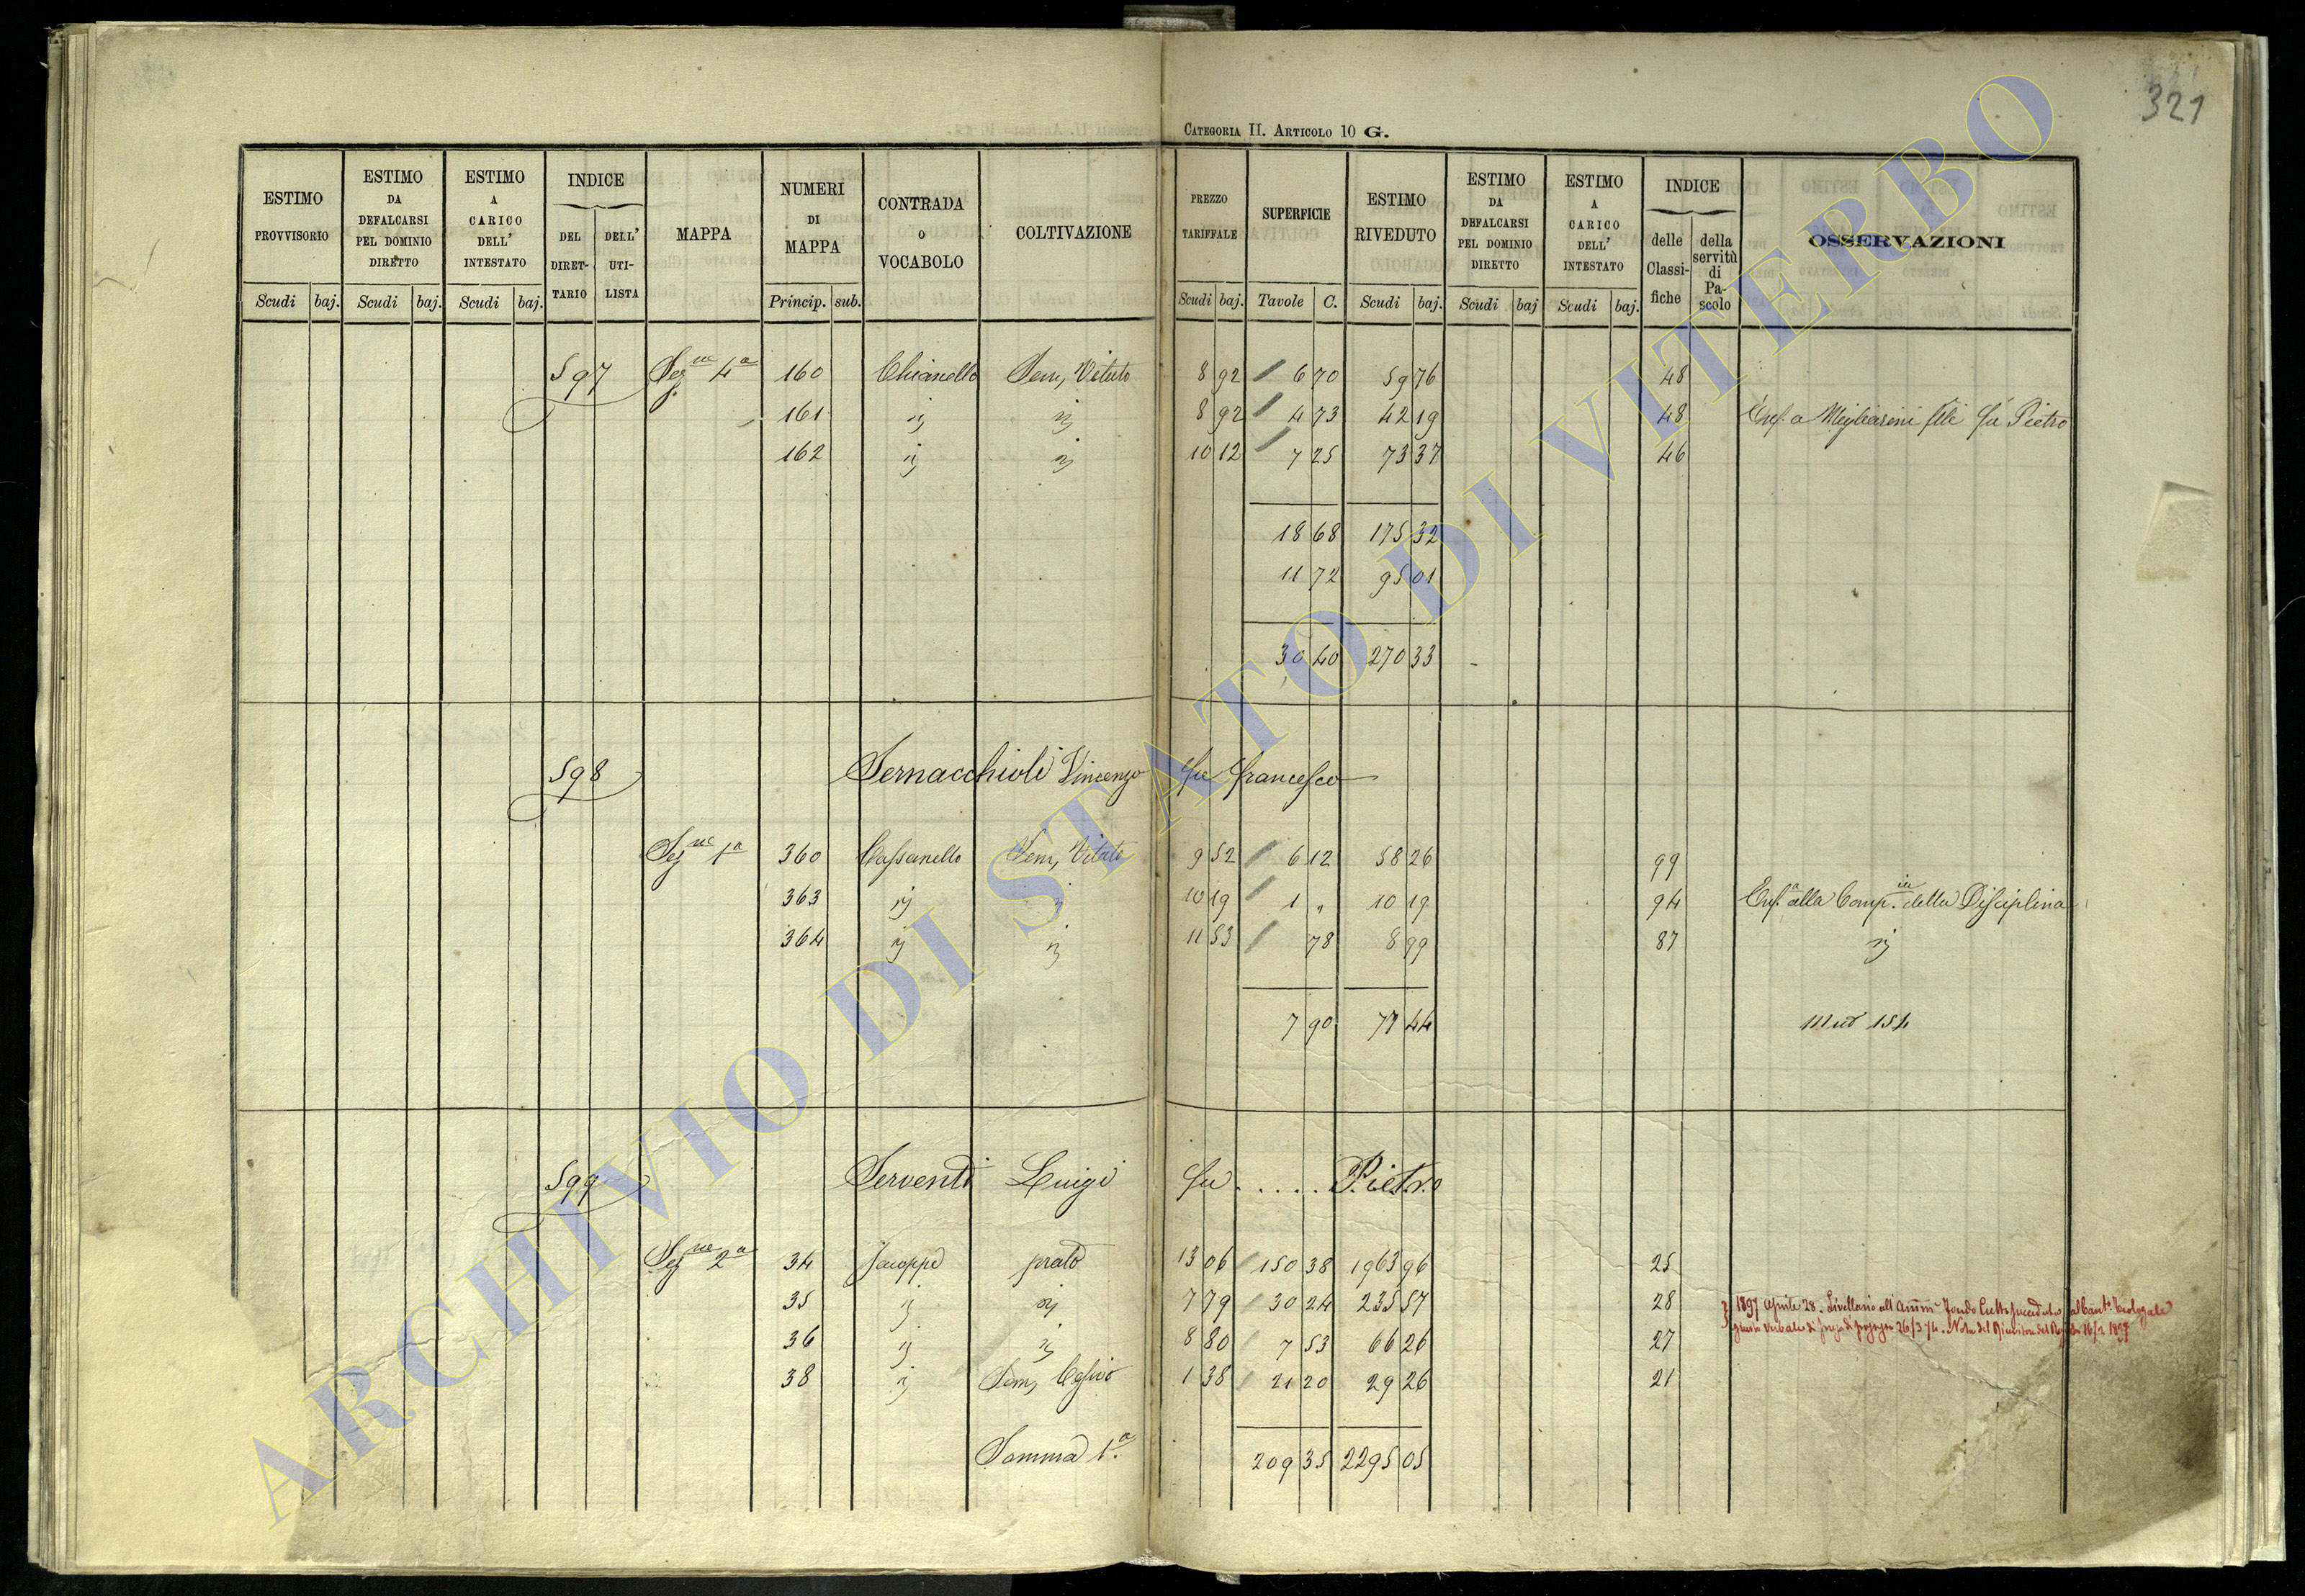 321
CATEGORIA II. ARTICOLO 10 G.
ESTIMO PROVVISORIO
ESTIMO DA DEFALCARSI PEL DOMINIO DIRETTO
ESTIMO A CARICO DELL' INTESTATO
INDICE
DEL DIRET- TARIO
DELL' UTI- LISTA
MAPPA
NUMERI DI MAPPA
CONTRADA O VOCABOLO
COLTIVAZIONE
PREZZO TARIFFALE
SUPERFICIE
ESTIMO RIVEDUTO
ESTIMO DA DEFALCARSI PEL DOMINIO DIRETTO
ESTIMO A CARICO DELL' INTESTATO
INDICE
delle Classi- fiche
della servitù di Pa- scolo
OSSERVAZIONI
Scudi baj. Scudi baj. Scudi baj. Princip. sub. Scudi baj. Tavole C. Scudi baj. Scudi baj Scudi baj.
597 Sez.ne 4a 160 Chianello Sem, Vitato 8 92 6 70 59 76 48
161 ij ij 8 92 4 73 42 19 48 Enf. a Migliarini flli fu Pietro
162 ij ij 10 12 7 25 73 37 46
18 68 175 32
11 72 95 01
30 40 270 33
598 Sernacchioli Vincenzo fu Francesco
Sez.ne 1a 360 Cassanello Sem, Vitato 9 52 6 12 58 26 99
363 ij ij 10 19 1 " 10 19 94 Enf.a alla Comp.ia della Disciplina
364 ij ij 11 53 78 8 99 87 ij
7 90 77 44 154
599 Serventi Luigi fu ..... Pietro
Sez.ne 2a 34 prato 13 06 150 38 1963 96 25
35 ij ij 7 79 30 24 235 57 28 1897 Aprile 28. Livellario all'
36 ij ij 8 80 7 53 66 26 27
38 ij Sem, 1 38 21 20 29 26 21
Somma 1.a 209 35 2295 05
ARCHIVIO DI STATO DI VITERBO